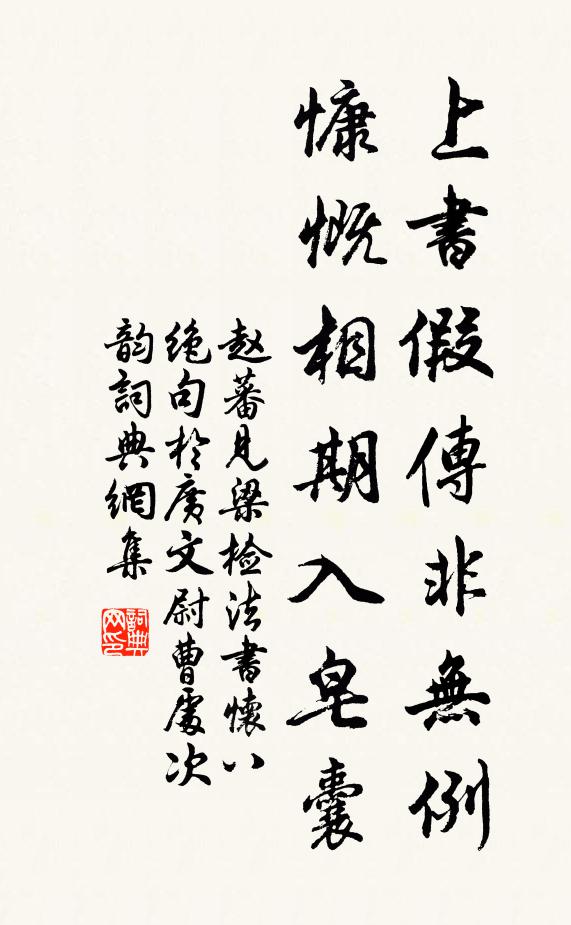 上書假傳非無例
慷慨相期入皂囊
赵蕃見梁检法書懷八
绝句於廣文尉曹處次
韵詞典網集
詞典网印